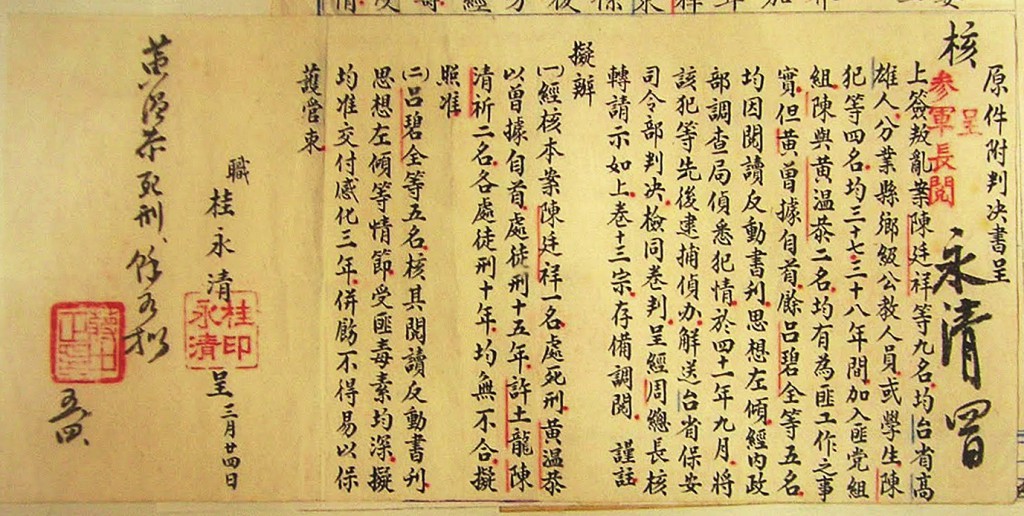 原件附判决書呈
呈
參軍長閱
核
永清
上簽叛亂案陳廷祥等九名均台省高
雄人分業縣鄉級公教人員或學生陳
犯等四名均三十七三十八年間加入匪黨組
組陳與黃温恭二名均有為匪工作之事
實但黃曾據自首餘呂碧全等五名
均因閱讀反動書刊思想左傾經內政
部調查局偵悉犯情於四十一年九月將
該犯等先後逮捕偵办解送台省保安
司令部判决檢同卷判呈經周總長核
轉請示如上卷十三宗存備調閱 謹註
擬辦
㈠經核本案陳廷祥一名處死刑黃温恭
以曾據自首處徒刑十五年許土龍陳
清祈二名各處徒刑十年均無不合擬
照准
㈡呂碧全等五名核其閱讀反動書刊
思想左傾等情節受匪毒素均深擬
均准交付感化三年併勵不得易以保
護管束
職 桂永清 呈 三月廿四日
桂永清印
黃溫恭死刑、餘如擬
蔣中正印
五四